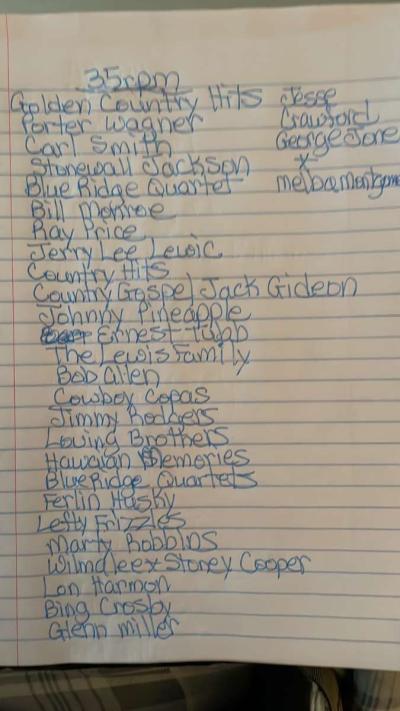 35rpm
Golden Country Hits
Porter Wagner
Carl Smith
Stonewall Jackson
Blue Ridge Quartet
Bill Monroe
Ray Price
Jerry Lee Lewic
Country Hits
Country Gospel Jack Gideon
Johnny Pineapple
Ernest Tubb
The Lewis Family
Bob Allen
Cowboy Copas
Jimmy Rodgers
Loving Brothers
Hawaian Memories
Blue Ridge Quartets
Ferlin Husky
Lefty Frizzles
Marty Robbins
Wilma lee x Stoney Cooper
Lon Harmon
Bing Crosby
Glenn miller
Jesse
Crawford
George Jone
x
melba montgome